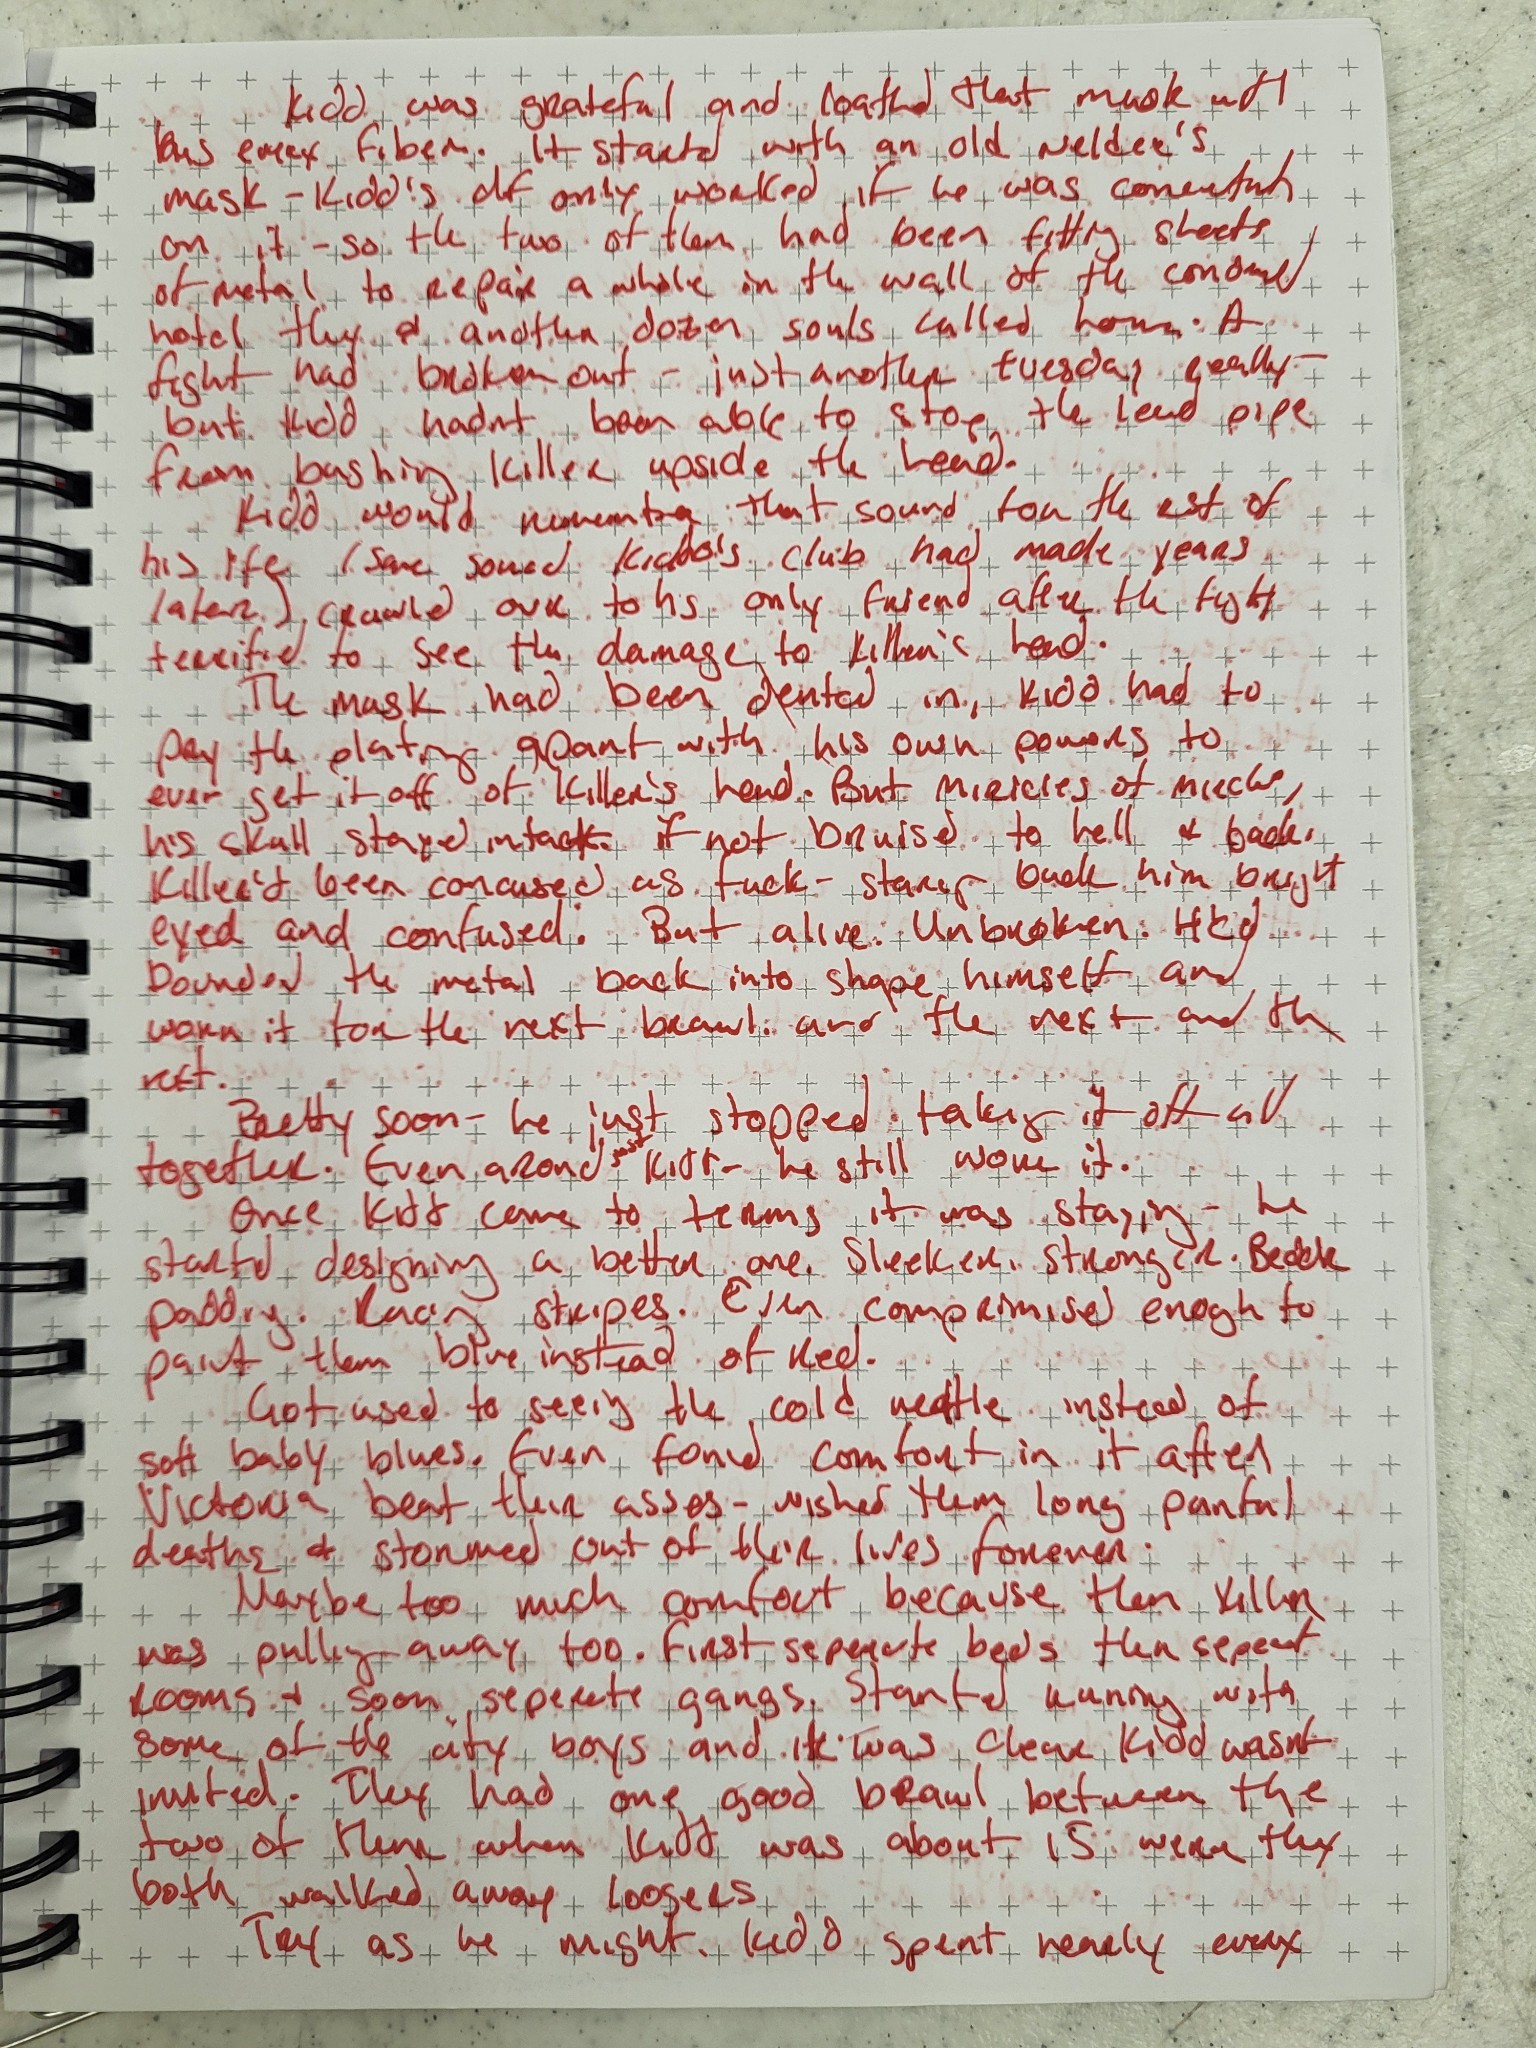 Kidd was grateful and loathed that mask with
his every fiber. It startd with an old welder's
mask - Kidd's df only worked if he was
on it - so the two of them had been fittng sheets
of metal to repair a whole in the wall of the
hotel they & another dozen souls called home. A
fight had broken out - just another tuesday really -
but Kidd hadnt been able to stop the lead pipe
from bashing Killer upside the head.
Kidd would remember that sound for the rest of
his life (same sound Kiddo's club had made years
later) crawled over to his only friend after the fight
terrified to see the damage to Killer's head.
The mask had been dented in, Kidd had to
pry the plating apart with his own powers to
ever get it off of Killer's head. But miricles of
his skull stayed intact. if not bruised to hell & back.
Killer'd been concused as fuck - staring back him bright
eyed and confused. But alive. Unbroken. He'd
pounded the metal back into shape himself and
worn it for the next brawl. and the next and the
next.
Pretty soon - he just stopped taking it off all
together. Even arond just Kidd - he still wore it.
Once Kidd came to terms it was staying - he
startd designing a better one. Sleeker. Stronger. Better
padding. Racing stripes. Even comprimised enogh to
paint them blue instead of red.
Got used to seeing the cold instead of
soft baby blues. Even found comfort in it after
Victoria beat their asses - wished them long painful
deaths & stormed out of their lives forever.
Maybe too much comfort because then Killer
was pulling away too. First seperate beds then seperat
rooms & soon seperate gangs. Started runing with
some of the city boys and it was clear Kidd wasnt
invited. They had one good brawl between the
two of them when Kidd was about 15 were they
both walked away loosers
Try as he might. Kidd spent nearly every